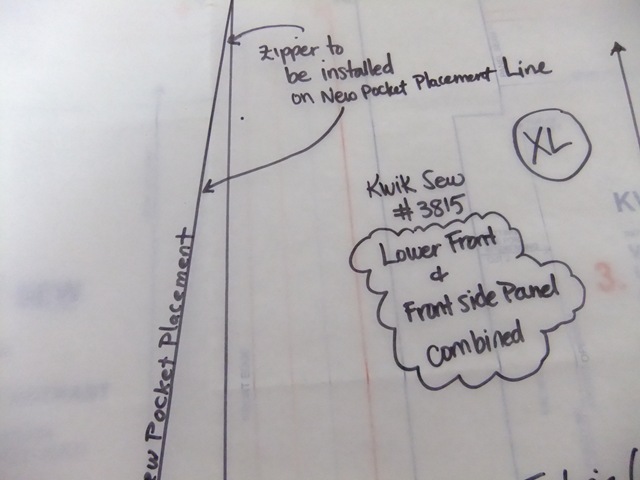 Zipper to
be installed
on New Pocket Placement Line
XL
Kwik Sew
#3815
Lower Front
&
Front side Panel
Combined
Pocket Placement
3.